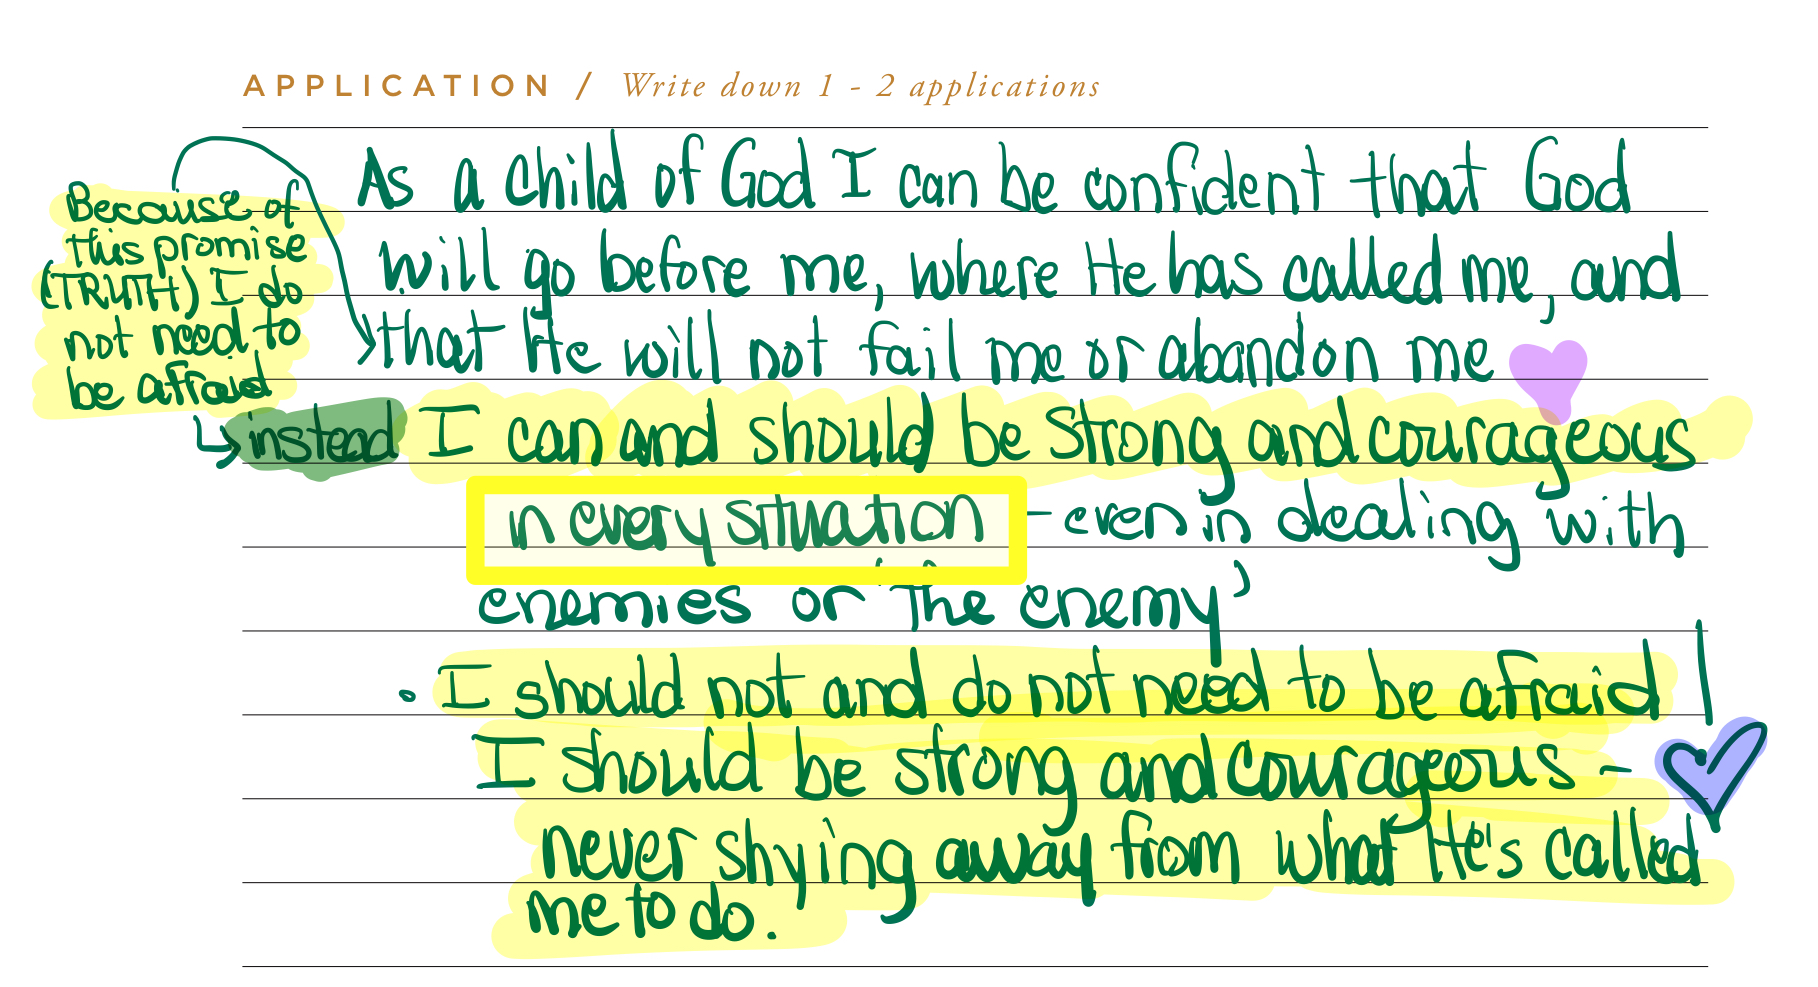 APPLICATION / Write down 1 - 2 applications
As a child of God I can be confident that God
will go before me, where He has called me, and
that He will not fail me or abandon me
Because of
this promise
(TRUTH) I do
not need to
be afraid
instead I can and should be strong and courageous
in every situation - even in dealing with
enemies or 'the enemy'
• I should not and do not need to be afraid
I should be strong and courageous -
never shying away from what He's called
me to do.